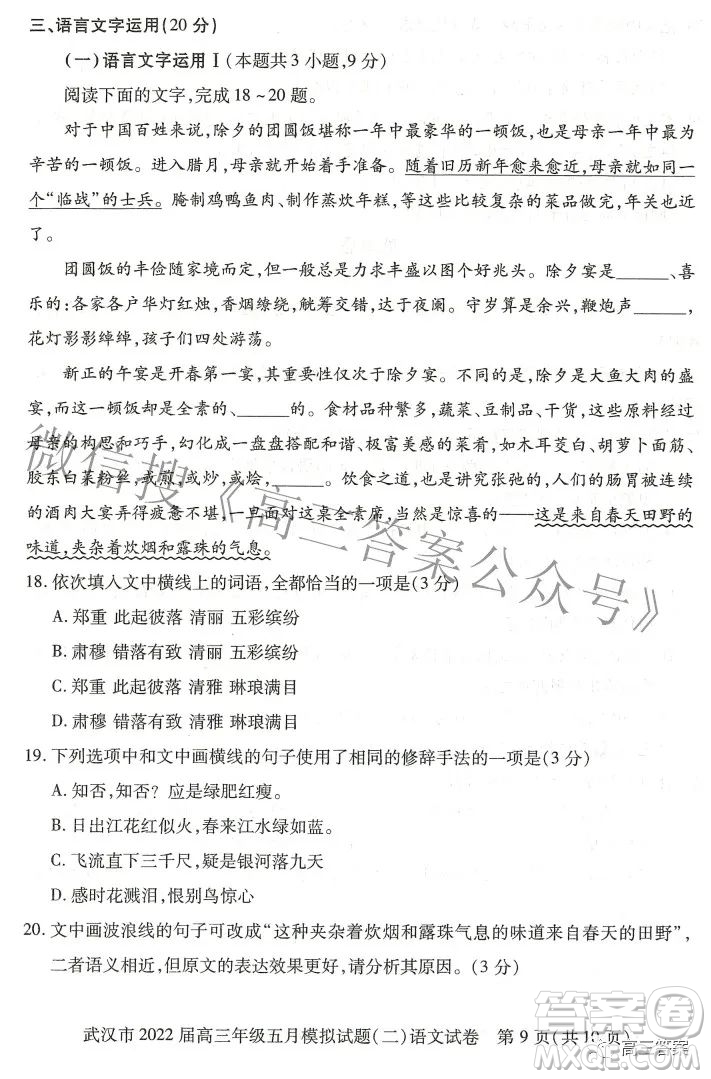 三、语言文字运用(20分)
(一)语言文字运用Ⅰ(本题共3小题,9分)
阅读下面的文字,完成18~20题。
对于中国百姓来说,除夕的团圆饭堪称一年中最豪华的一顿饭,也是母亲一年中最为
辛苦的一顿饭。进入腊月,母亲就开始着手准备。随着旧历新年愈来愈近,母亲就如同一
个“临战”的士兵。腌制鸡鸭鱼肉、制作蒸炊年糕,等到比较复杂的菜品完成,年关也就近
了。
团圆饭的丰俭随家境而定,但总是力求丰盛以图个好兆头。除夕宴______、喜
乐的:各家各户华灯红烛,香烟缭绕,觥筹交错,通宵达于夜阑。守岁算是余兴,鞭炮声______,
花灯影影绰绰,孩子们四处游荡。
新正的午宴是开春第一宴,其重要性仅次于除夕宴。不同的是,除夕是大鱼大肉的盛
宴,而这一顿饭却是全素的、______的。食材品种繁多,蔬菜、豆制品、干货,这些原料经过
母亲的构思和巧手,幻化成一盘盘搭配和谐、极富美感的菜肴,如木耳茭白、胡萝卜面筋、
胶东白菜粉丝,或煎,或炒,或烩,______。饮食之道,也是讲究张弛的。人们的肠胃被连续
的酒肉大宴弄得疲惫不堪,突然面对这桌全素席,当然是惊喜的——这是来自春天田野的
味道,夹杂着炊烟和露珠的气息。
18. 依次填入文中横线上的词语,全都恰当的一项是(3分)
A. 郑重 此起彼落 清丽 五彩缤纷
B. 肃穆 错落有致 清丽 五彩缤纷
C. 郑重 此起彼落 清雅 琳琅满目
D. 肃穆 错落有致 清雅 琳琅满目
19. 下列选项中和文中画横线的句子使用了相同的修辞手法的一项是(3分)
A. 知否,知否?应是绿肥红瘦。
B. 日出江花红似火,春来江水绿如蓝。
C. 飞流直下三千尺,疑是银河落九天
D. 感时花溅泪,恨别鸟惊心
20. 文中画波浪线的句子可改成“这种夹杂着炊烟和露珠气息的味道来自春天的田野”,
二者语义相近,但原文的表达效果更好,请分析其原因。(3分)
武汉市2022届高三年级五月模拟试题(二)语文试卷 第9页(共10页)
微信搜《高三答案公众号》
高三答案
MXQE.COM